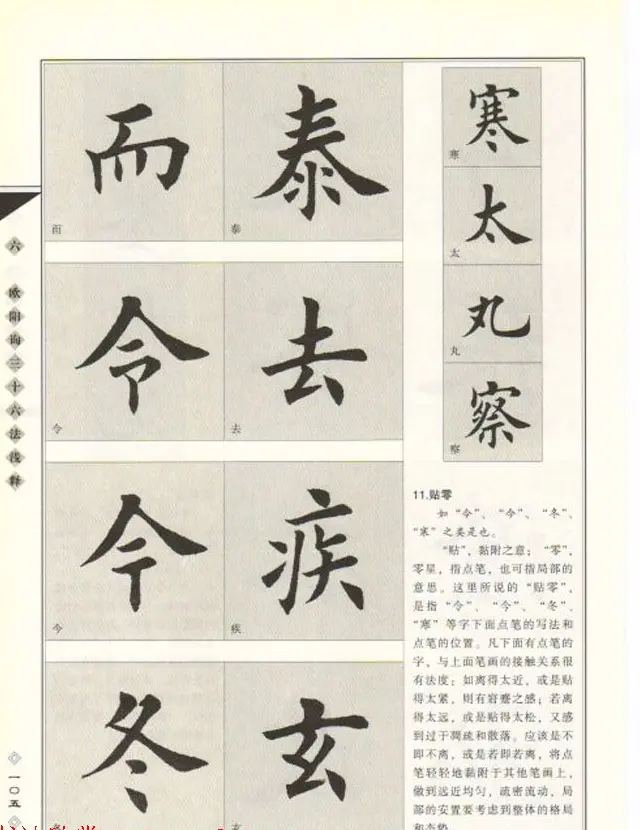 六 欧阳询三十六法浅释
一〇五
而
而
泰
泰
令
令
去
去
今
今
疾
疾
冬
玄
寒
寒
太
太
丸
丸
察
察
11.贴零
如“令”、“今”、“冬”、
“寒”之类是也。
“贴”,黏附之意;“零”,
零星,指点笔,也可指局部的
意思。这里所说的“贴零”,
是指“令”、“今”、“冬”、
“寒”等字下面点笔的写法和
点笔的位置。凡下面有点笔的
字,与上面笔画的接触关系很
有法度:如离得太近,或是贴
得太紧,则有窘蹙之感;若离
得太远,或是贴得太松,又感
到过于凋疏和散落。应该是不
即不离,或是若即若离,将点
笔轻轻地黏附于其他笔画上,
做到远近均匀,疏密流动,局
部的安置要考虑到整体的格局
和态势